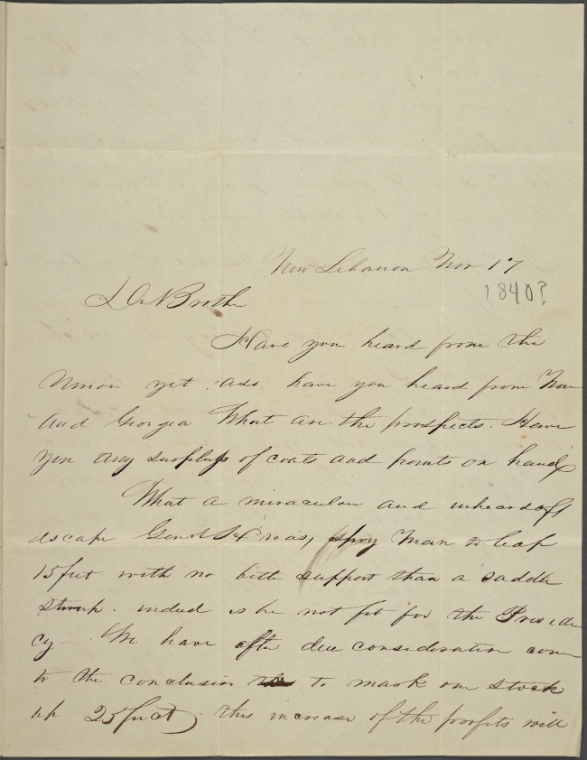 New Lebanon Nov 17
1840?
Dr Brother
Have you heard from the
Union yet ads. have you heard from
and Georgia What are the prospects. Have
you any surplus of coats and pants on hand
What a miraculous and unheard of
escape Genrl had, spry Man to leap
15 feet with no bett support than a saddle
stirrup. indeed is he not fit for the Presiden
cy - We have after due consideration com
to the conclusion to mark our stock
up 25 pr ct, this increase of the profits will